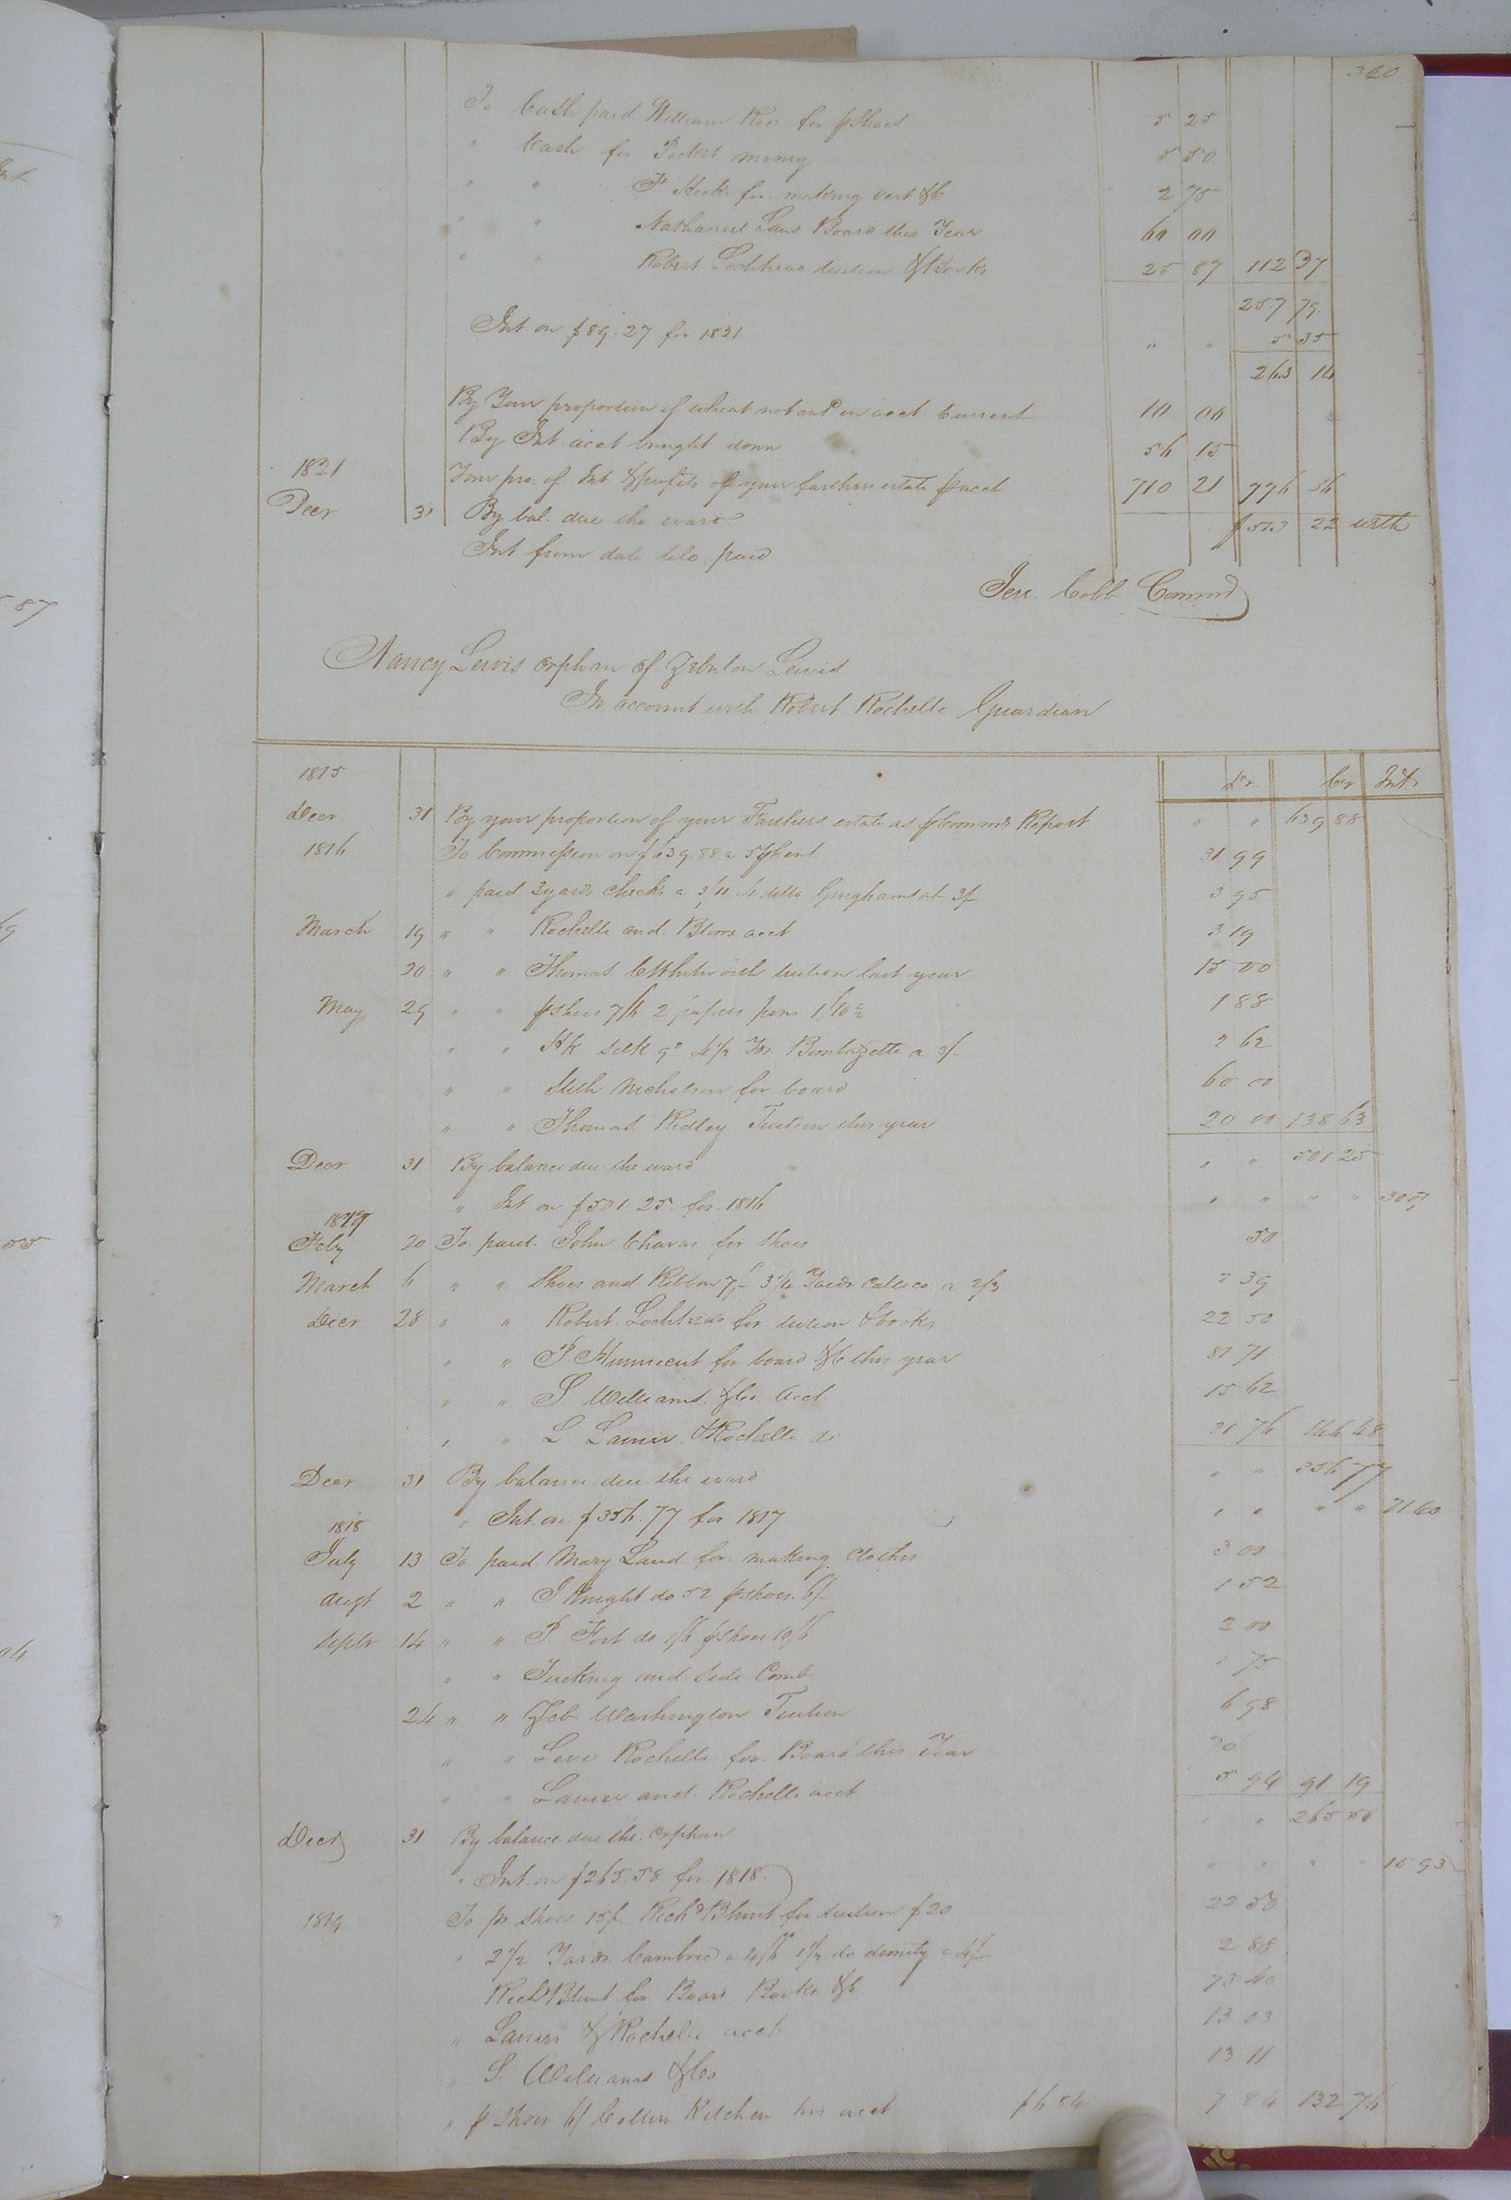 340
To Cash paid William Kerr for p shoes 5 25
" Cash for Pocket money 5 50
" " F Hicks for making vest &c 2 75
" " Nathaniel Land Board this Year 60 00
" " Robert Lochhead tuition & Books 25 87 112 37
257 79
Int on $89.27 for 1821 " " 5 35
263 14
By Your proportion of wheat not entd in acct Current 10 00
By Int acct brought down 56 15
1821 Your pro. of Int & profits of your fathers estate p acct 710 21 776 36
Decr 31 By bal. due the ward $513 22 with
Int from date till paid
Jere. Cobb Commr
Nancy Lewis orphan of Zebulon Lewis
In account with Robert Rochelle Guardian
1815 Dr. Cr Int.
Decr 31 By your proportion of your Fathers estate as p Comms Report " " 639 88
1816 To Commission on $639.88 a 5 p Cent 31 99
" paid 3 yards checks a 3/11 4 ditto Ginghams at 3/ 3 95
March 19 " " Rochelle and Blows acct 3 19
20 " " Thomas Whitworth tuition last year 15 00
May 29 " " p shoes 7/6 2 papers pins 1/10½ 1 88
" " Hk silk 9d 4½ Yds Bombazette a 3/ 2 62
" " Nicholson for board 60 00
" " Thomas Ridley Tuition this year 20 00 138 63
Decr 31 By balance due the ward " " 501 25
" Int on $501.25 for 1816 " " " " 30 07
1817
Feby 20 To paid John Chavas for shoes 50
March 6 " " Shoes and Ribbon 7/ 3¼ Yards Callico a 2/3 2 39
Decr 28 " " Robert Lochhead for tuition & books 22 50
" " P. Hunnicut for board &c this year 71
" " S. Williams & Co. Acct 15 62
" " L Lanier & Rochelle do 21 76 144 48
Decr 31 By balance due the ward " " 356 77
" Int. on $356.77 for 1817 " " " " 21.40
1818
July 13 To paid Mary Land for making clothes 3 00
Augt 2 " " J Knight do 52 p shoes 6/ 1 52
Septr 14 " " P. Fort do 1/6 p shoes 10/6 2 00
" " Tucking and side Comb 75
24 " " Zeb Washington Tuition 6 98
" " Levi Rochelle for Board this Year 70
" " Lanier and Rochelle acct 5 94 91 19
Decr 31 By balance due the orphan " " 265 58
" Int. on $265.58 for 1818 " " " " 15 93
1819 To pr shoes 15/ Richd Blunt for tuition $20 22 50
" 2½ Yards Cambric a 4/6 1½ do dimity a 4/ 2 88
Richd Blunt for Board Books &c 73 40
" Laniers & Rochelle acct 13 03
" S. Williams & Co 13 11
" p Shoes 6/ Collin Kitchen his acct $6.84 7 84 132 76